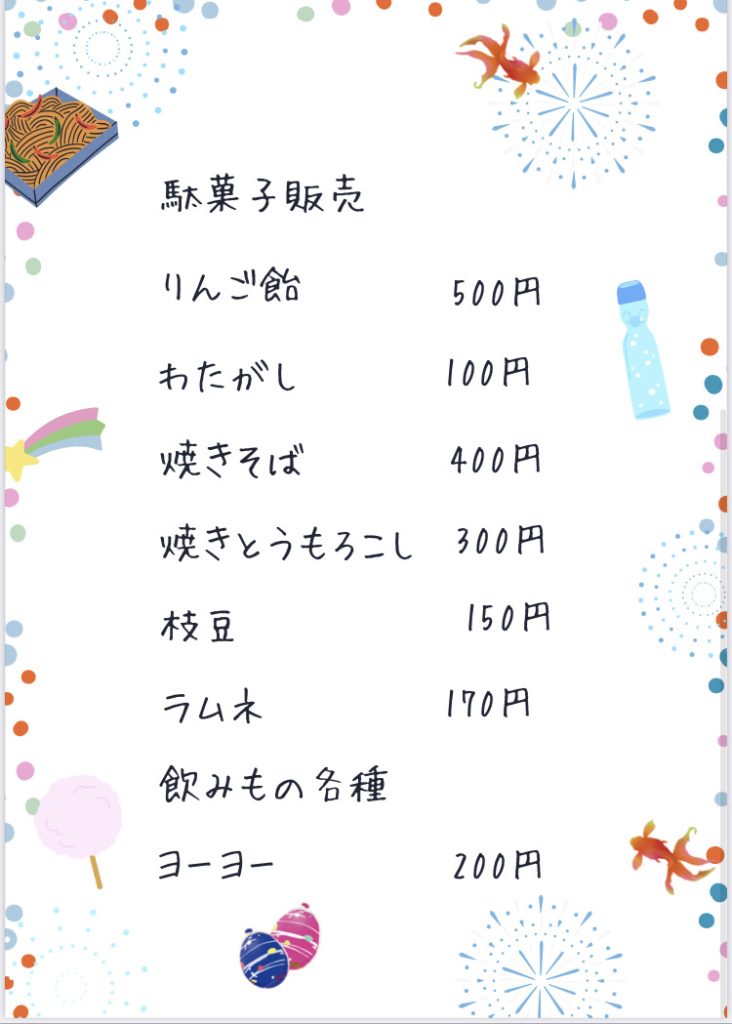 駄菓子販売
りんご飴 500円
わたがし 100円
焼きそば 400円
焼きとうもろこし 300円
枝豆 150円
ラムネ 170円
飲みもの各種
ヨーヨー 200円